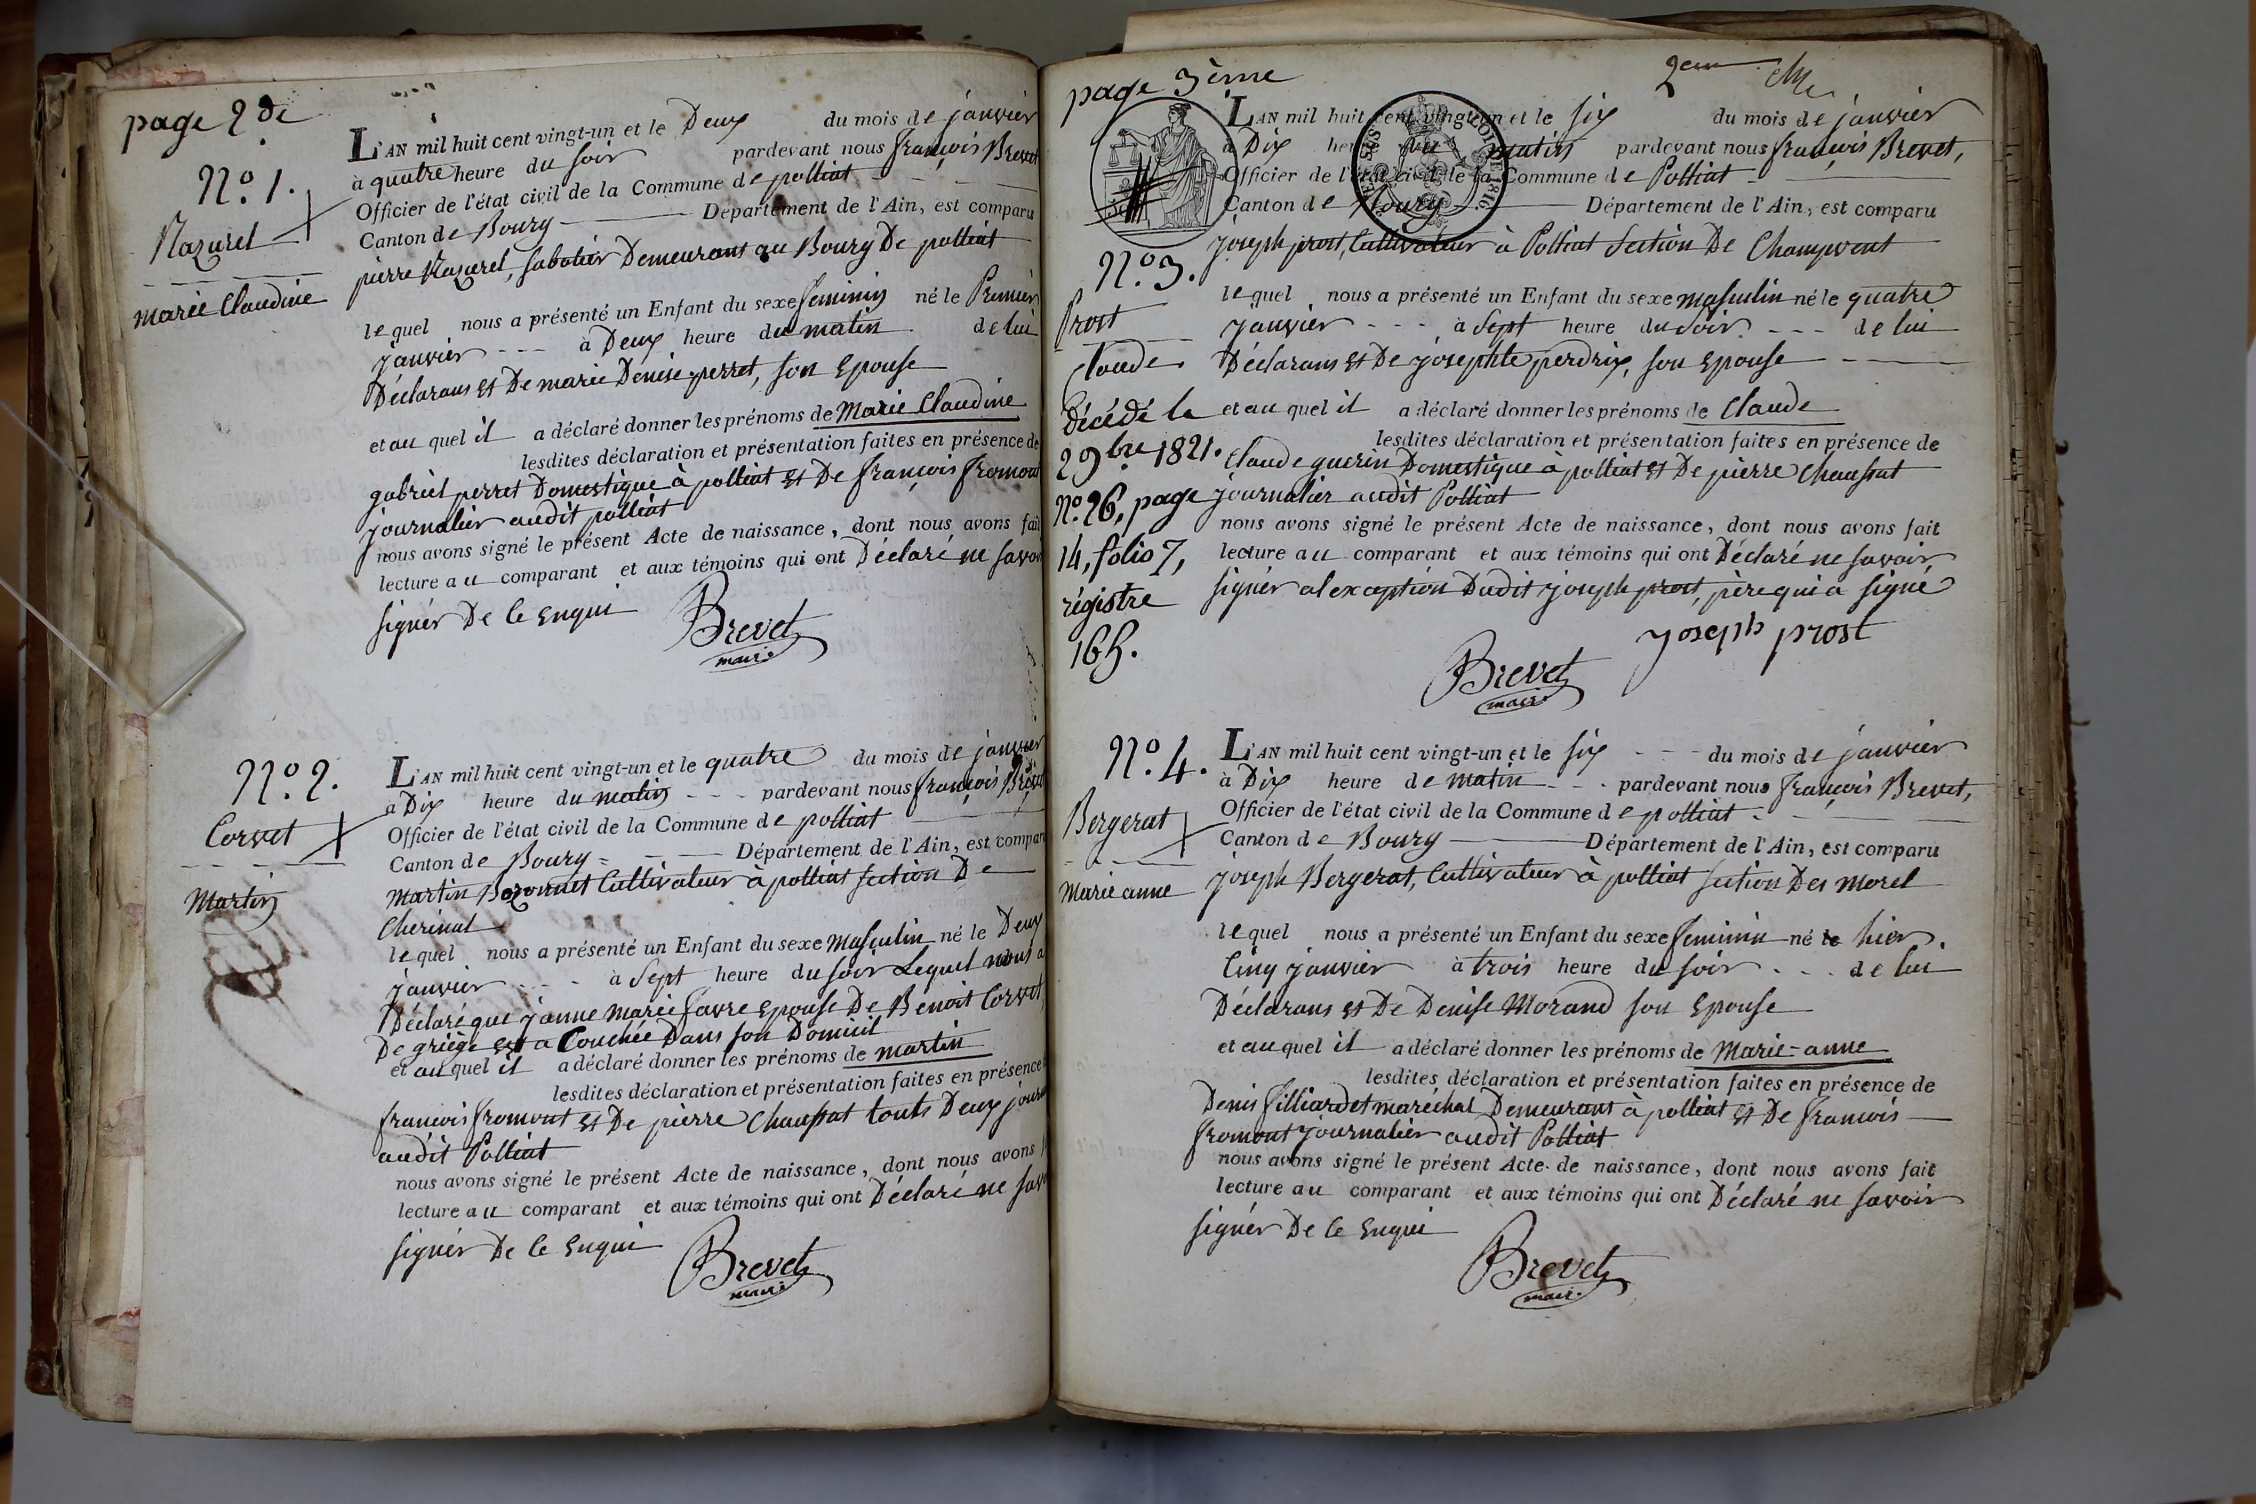 page 2de
N.o 1.
Nazaret
marie Claudine
L'AN mil huit cent vingt-un et le Deux du mois de janvier
à quatre heure du soir pardevant nous françois Brevet
Officier de l'état civil de la Commune de polliat
Canton de Bourg Département de l'Ain, est comparu
pierre Nazaret, sabotier Demeurans au Bourg De polliat
lequel nous a présenté un Enfant du sexe feminin né le Premier
janvier à Deux heure du matin de lui
Déclarans et De marie Denise perret, son Epouse
et au quel il a déclaré donner les prénoms de Marie Claudine
lesdites déclaration et présentation faites en présence de
gabriel perret Domestique à polliat et De françois fromont
journalier audit polliat
nous avons signé le présent Acte de naissance, dont nous avons fait
lecture au comparant et aux témoins qui ont Déclaré ne savoir
signér De ce Enqui
Brevet
maire
N.o 2.
Corvet
Martin
L'AN mil huit cent vingt-un et le quatre du mois de janvier
à Dix heure du matin pardevant nous françois Brevet
Officier de l'état civil de la Commune de polliat
Canton de Bourg Département de l'Ain, est comparu
martin Bozonnet Cultivateur à polliat section De
Cherinat
lequel nous a présenté un Enfant du sexe masculin né le Deux
janvier à sept heure du soir Lequel nous a
Déclaré que janne marie favre epouse De Benoit Corvet
De griège est a Couchée Dans son Domicil
et au quel il a déclaré donner les prénoms de martin
lesdites déclaration et présentation faites en présence
francois fromont et De pierre Chaussat touts Deux journ
audit Polliat
nous avons signé le présent Acte de naissance, dont nous avons f
lecture au comparant et aux témoins qui ont Déclaré ne sav
signér De ce Enqui
Brevet
maire
page 3ème
2eme
L'AN mil huit cent vingt-un et le six du mois de janvier
à Dix heure du matin pardevant nous françois Brevet,
Officier de l'état civil de la Commune de Polliat
Canton de Bourg Département de l'Ain, est comparu
joseph prost, Cultivateur à Polliat Section De Champvent
N.o 3.
Prost
Claude
Décédé le
2 9bre 1821.
No. 26, page
14, folio 7,
régistre
165.
lequel nous a présenté un Enfant du sexe masculin né le quatre
janvier à sept heure du soir de lui
Déclarans et De josephte perdrix, son Epouse
et au quel il a déclaré donner les prénoms de Claude
lesdites déclaration et présentation faites en présence de
Claude guerin Domestique à polliat et De pierre Chaussat
journalier audit Polliat
nous avons signé le présent Acte de naissance, dont nous avons fait
lecture au comparant et aux témoins qui ont Déclaré ne savoir
signér al exception Dudit joseph prost, père qui a signé
joseph prost
Brevet
maire
N.o 4.
Bergerat
Marie anne
L'AN mil huit cent vingt-un et le six du mois de janvier
à Dix heure de matin pardevant nous françois Brevet,
Officier de l'état civil de la Commune de polliat
Canton de Bourg Département de l'Ain, est comparu
joseph Bergerat, Cultivateur à polliat section Des morel
lequel nous a présenté un Enfant du sexe feminin né le hier
Cinq janvier à trois heure du soir de lui
Déclarans et De Denise Morand son Epouse
et au quel il a déclaré donner les prénoms de Marie-anne
lesdites déclaration et présentation faites en présence de
Denis filliardet maréchal Demeurant à polliat et De francois
fromont journalier audit Polliat
nous avons signé le présent Acte de naissance, dont nous avons fait
lecture au comparant et aux témoins qui ont Déclaré ne savoir
signér De ce Enqui
Brevet
maire